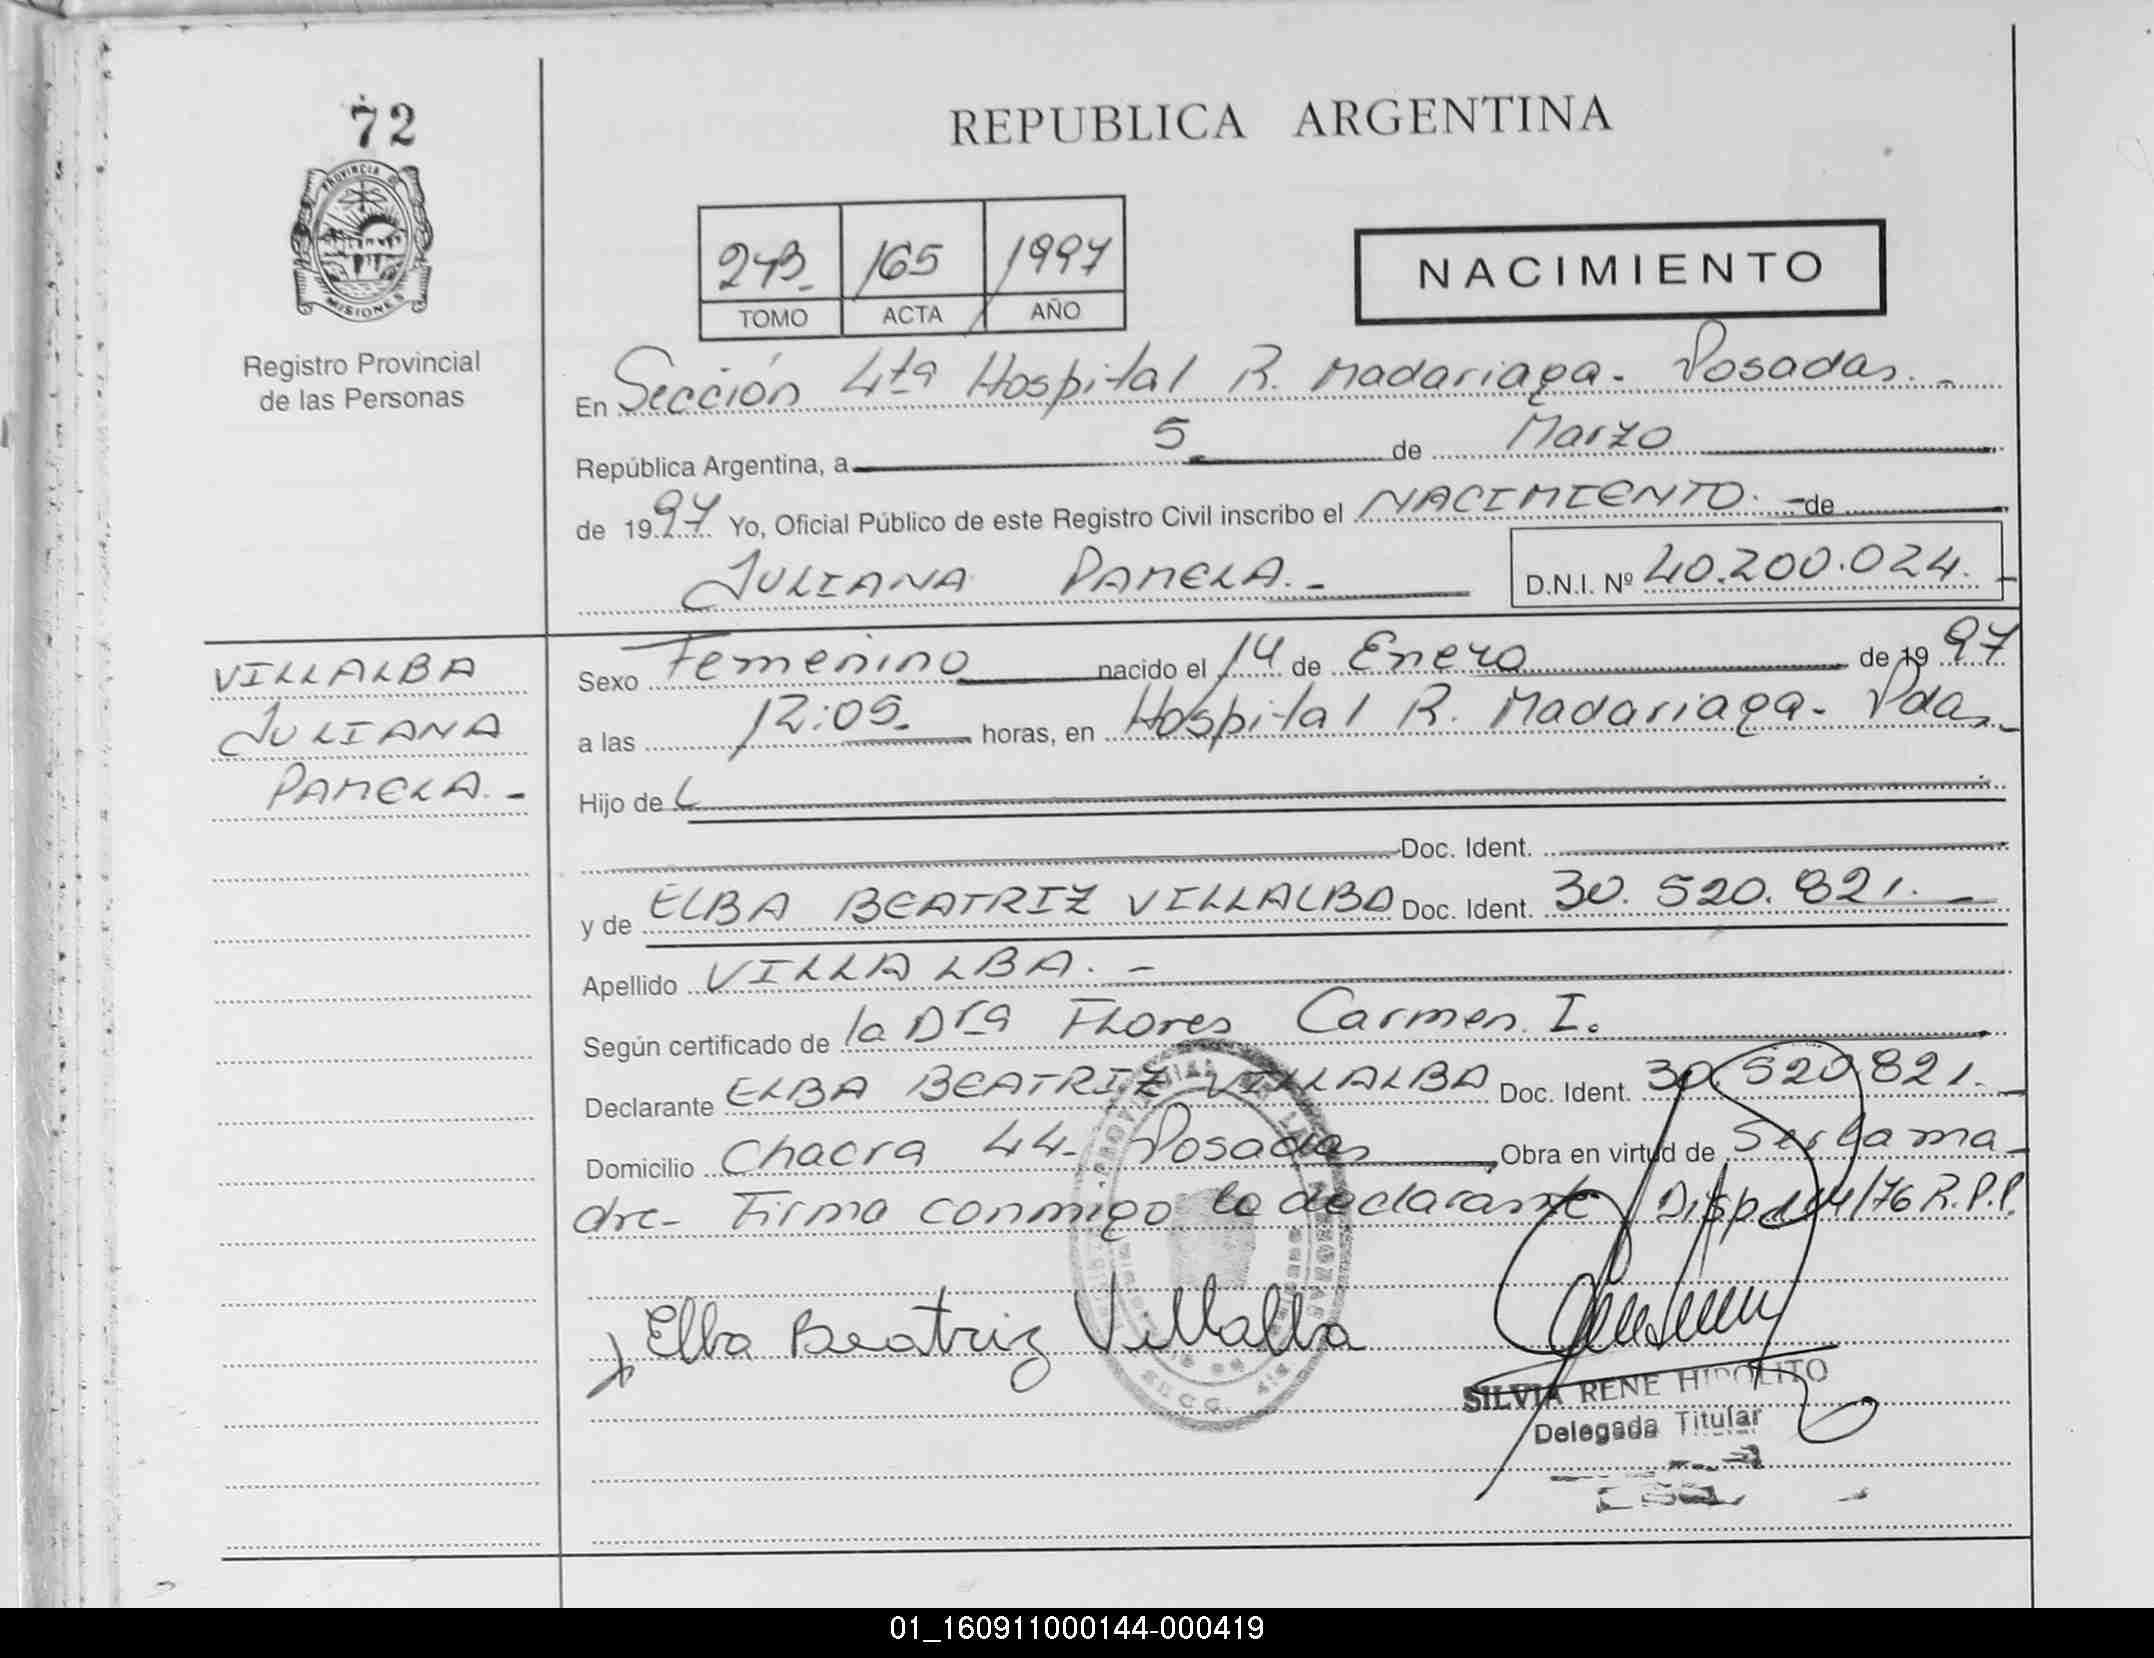 72
REPUBLICA ARGENTINA
PROVINCIA DE
MISIONES
Registro Provincial
de las Personas
243- 165 1997
TOMO ACTA AÑO
NACIMIENTO
En Sección 4ta Hospital R. Madariaga- Posadas.-
República Argentina, a 5 de Marzo
de 1997 Yo, Oficial Público de este Registro Civil inscribo el NACIMIENTO.- de
JULIANA PAMELA.- D.N.I. Nº 40.200.024.-
VILLALBA
JULIANA
PAMELA.-
Sexo Femenino nacido el 14 de Enero de 1997
a las 12:05.- horas, en Hospital R. Madariaga- Pdas.-
Hijo de
Doc. Ident.
y de ELBA BEATRIZ VILLALBA Doc. Ident. 30.520.821.-
Apellido VILLALBA.-
Según certificado de la Dra Flores Carmen I.
Declarante ELBA BEATRIZ VILLALBA Doc. Ident. 30.520.821.-
Domicilio Chacra 44- Posadas Obra en virtud de Ser la ma-
dre- Firma conmigo la declarante Disp. 114/76 R.P.P.
Elba Beatriz Villalba
SILVIA RENE HIPOLITO
Delegada Titular
01_160911000144-000419